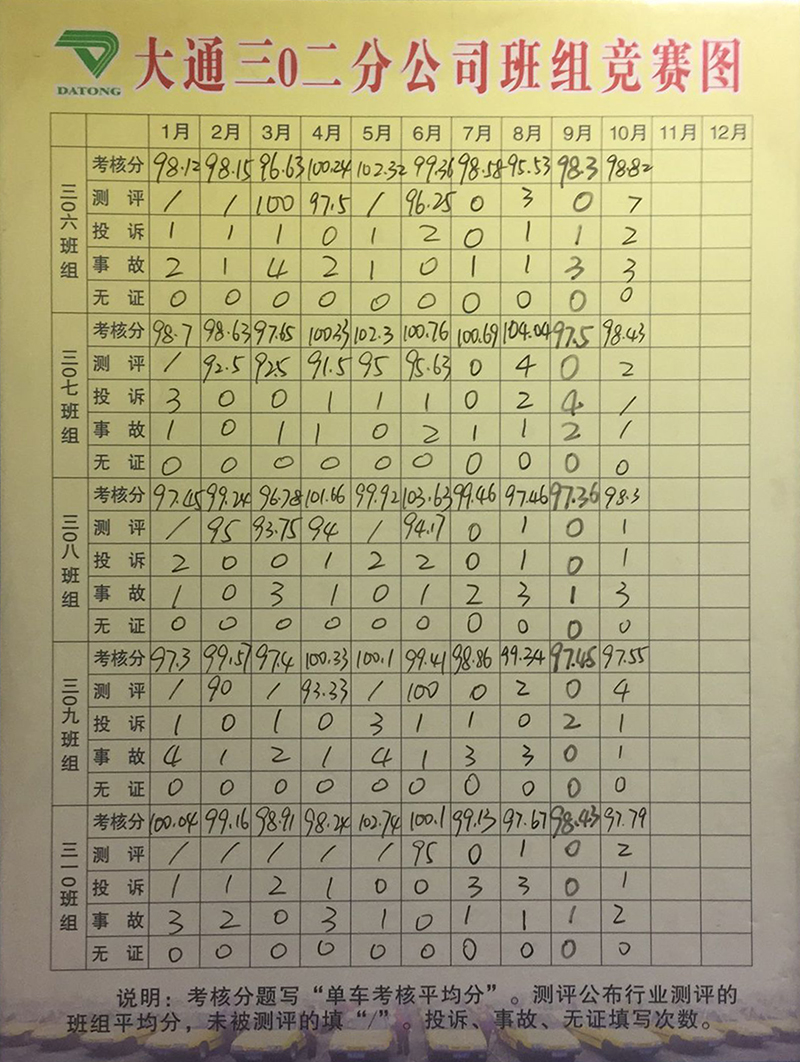 DATONG
大通三0二分公司班组竞赛图
1月 2月 3月 4月 5月 6月 7月 8月 9月 10月 11月 12月
三〇六班组
考核分 98.12 98.15 96.63 100.24 102.32 99.36 98.58 95.53 98.3 98.82
测评 / / 100 97.5 / 96.25 0 3 0 7
投诉 1 1 1 0 1 2 0 1 1 2
事故 2 1 4 2 1 0 1 1 3 3
无证 0 0 0 0 0 0 0 0 0 0
三〇七班组
考核分 98.7 98.63 97.65 100.33 102.3 100.76 100.69 104.04 97.5 98.43
测评 / 92.5 92.5 91.5 95 95.63 0 4 0 2
投诉 3 0 0 1 1 1 0 2 4 /
事故 1 0 1 1 0 2 1 1 2 /
无证 0 0 0 0 0 0 0 0 0 0
三〇八班组
考核分 97.45 99.24 96.78 101.66 99.92 103.63 99.46 97.46 97.36 98.3
测评 / 95 93.75 94 / 94.17 0 1 0 1
投诉 2 0 0 1 2 2 0 1 0 1
事故 1 0 3 1 0 1 2 3 1 3
无证 0 0 0 0 0 0 0 0 0 0
三〇九班组
考核分 97.3 99.57 97.4 100.33 100.1 99.41 98.86 99.34 97.45 97.55
测评 / 90 / 93.33 / 100 0 2 0 4
投诉 1 0 1 0 3 1 1 0 2 1
事故 4 1 2 1 4 1 3 3 0 1
无证 0 0 0 0 0 0 0 0 0 0
三一〇班组
考核分 100.04 99.16 98.91 98.24 102.74 100.1 99.13 97.67 98.43 97.79
测评 / / / / / 95 0 1 0 2
投诉 1 1 2 1 0 0 3 3 0 1
事故 3 2 0 3 1 0 1 1 1 2
无证 0 0 0 0 0 0 0 0 0 0
说明：考核分题写“单车考核平均分”。测评公布行业测评的
班组平均分，未被测评的填“/”。投诉、事故、无证填写次数。